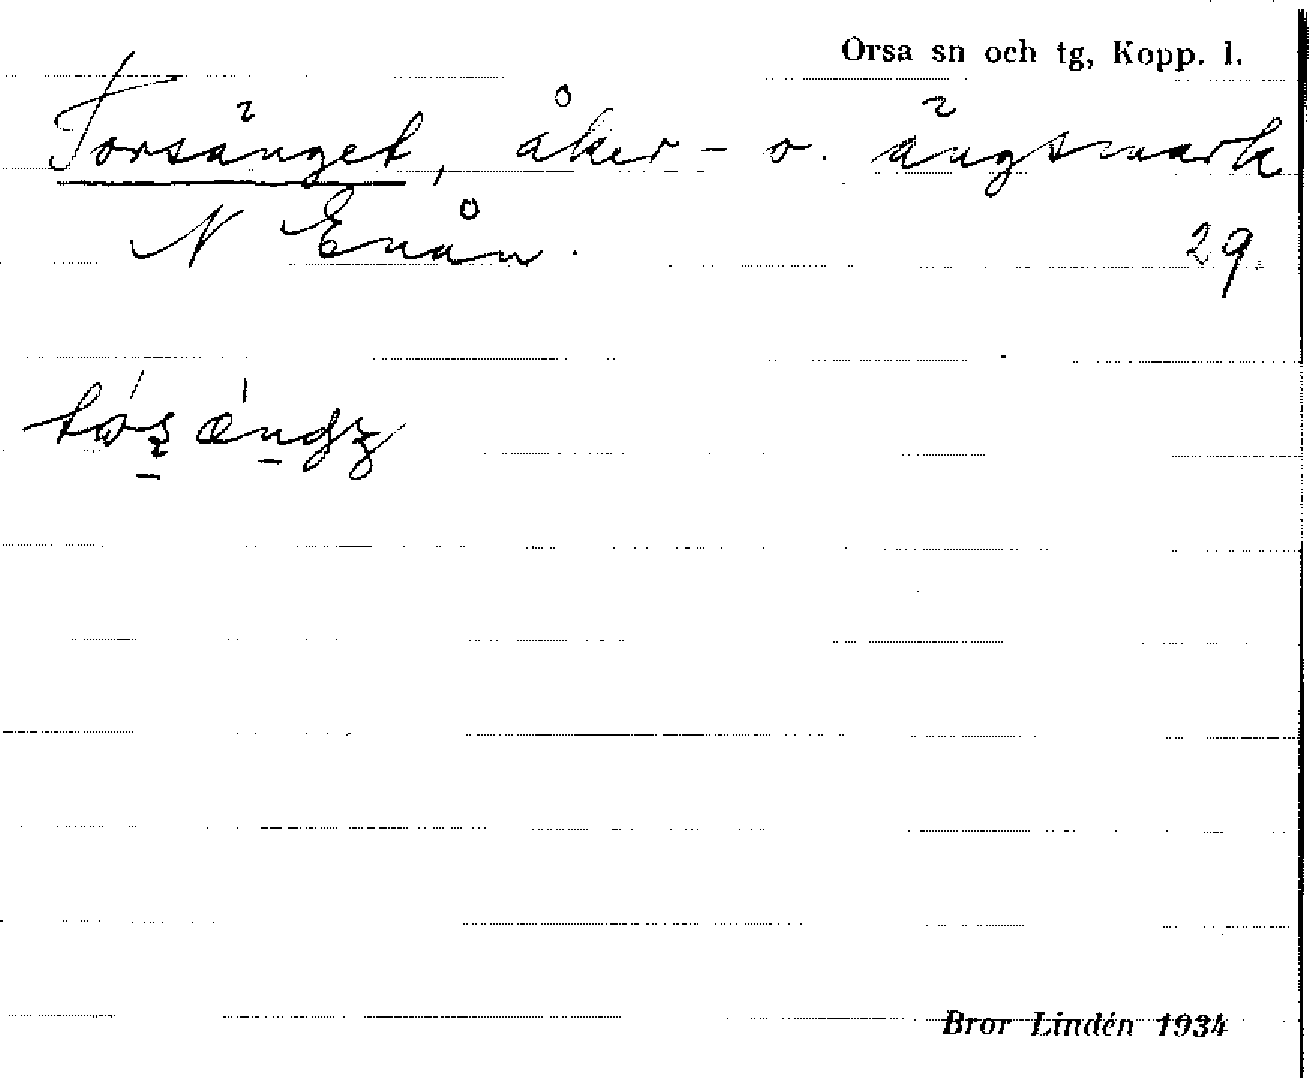 Orsa sn och tg, Kopp. l.
Torsänget, åker- o. ängsmark
N Enån.
29.
Bror Lindén 1934